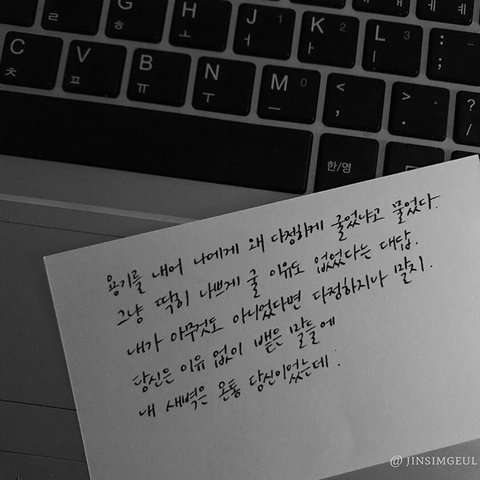 G ㅎ
H ㅗ
J ㅓ 1
K ㅏ 2
L ㅣ 3
C ㅊ
V ㅍ
B ㅠ
N ㅜ
M ㅡ 0
< ,
> .
? /
한/영
용기를 내어 나에게 왜 다정하게 굴었냐고 물었다.
그냥 딱히 나쁘게 굴 이유도 없었다는 대답.
내가 아무것도 아니었다면 다정하지나 말지.
당신은 이유 없이 뱉은 말들에
내 새벽은 온통 당신이었는데.
@ JINSIMGEUL